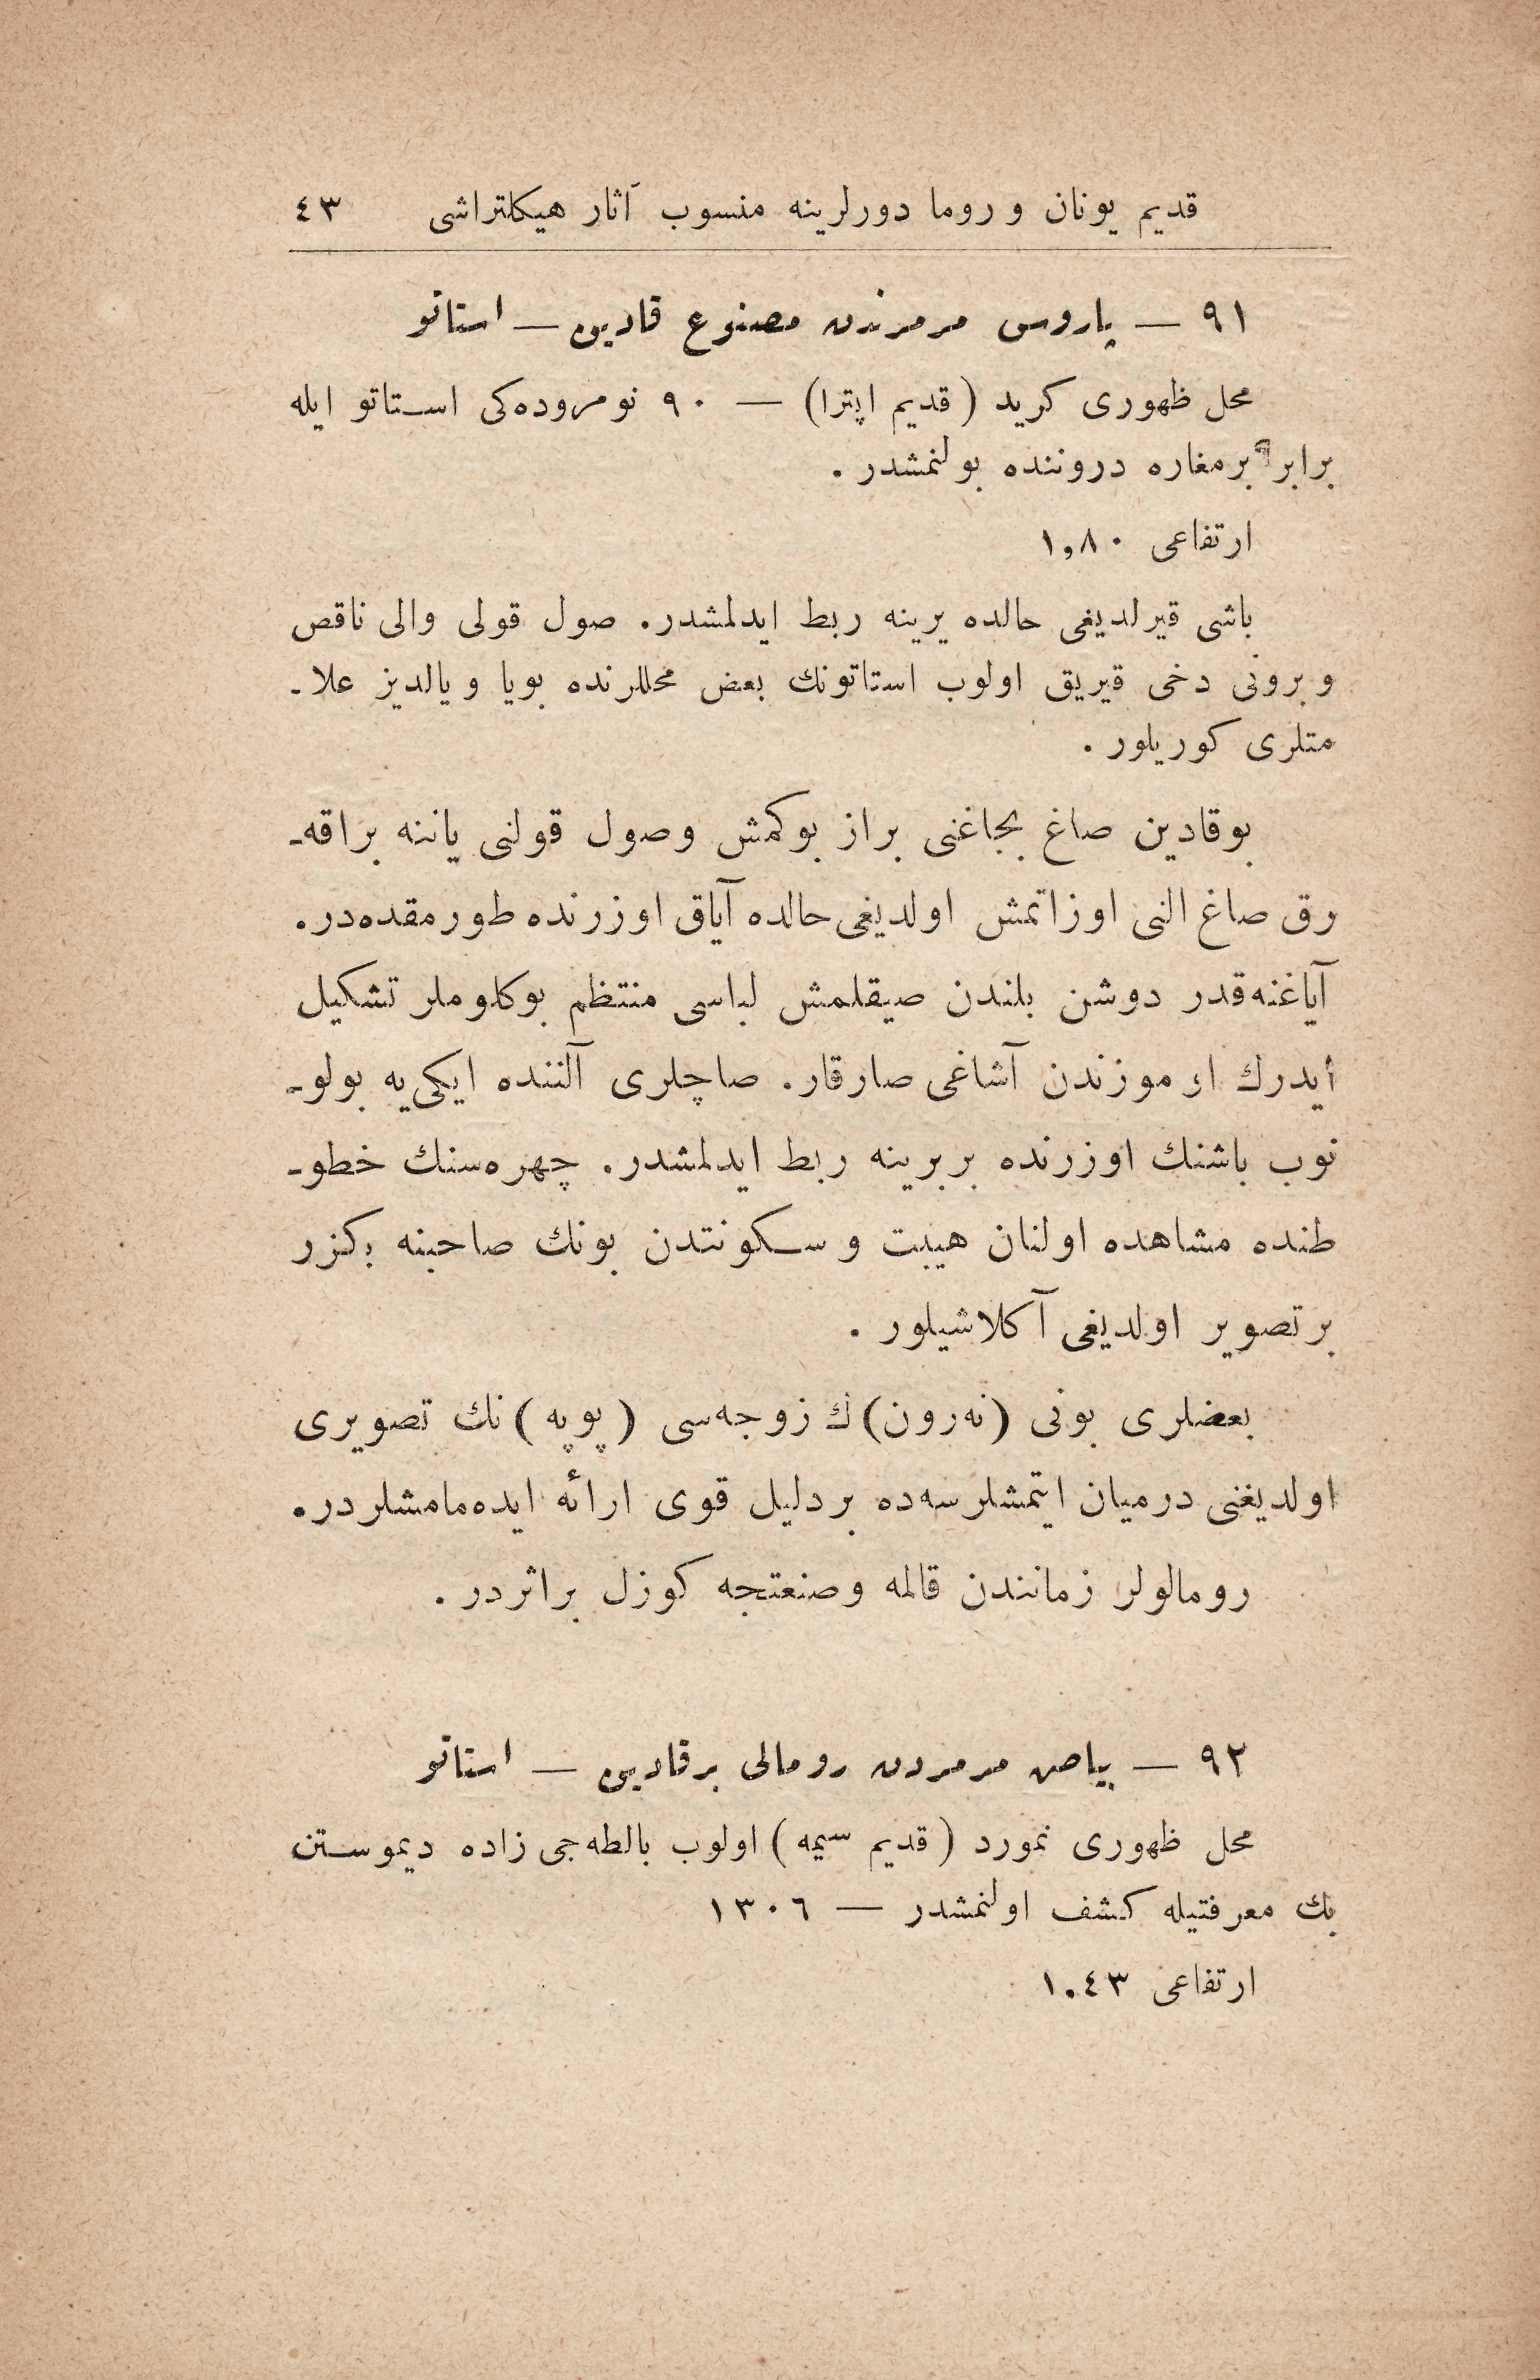 قديم يونان و روما دورلرينه منسوب آثار هيكلتراشى ٤٣
٩١ — پاروس مرمرندن مصنوع قادين — استاتو
محل ظهورى كريد (قديم اپترا) — ٩٠ نومروده‌كى استاتو ايله
برابر بر مغاره دروننده بولنمشدر .
ارتفاعى ١,٨٠
باشى قيرلديغى حالده يرينه ربط ايدلمشدر. صول قولى والى ناقص
و برونى دخى قيريق اولوب استاتونك بعض محللرنده بويا و يالديز علا-
متلرى كوريلور .
بوقادين صاغ بجاغنى براز بوكمش وصول قولنى ياننه براقه-
رق صاغ النى اوزاتمش اولديغى حالده آياق اوزرنده طورمقده‌در.
آياغنه‌قدر دوشن بلندن صيقلمش لباسى منتظم بوكلوملر تشكيل
ايدرك اوموزندن آشاغى صارقار. صاچلرى آلننده ايكى‌يه بولو-
نوب باشنك اوزرنده بربرينه ربط ايدلمشدر. چهره‌سنك خطو-
طنده مشاهده اولنان هيبت و سكونتدن بونك صاحبنه بكزر
برتصوير اولديغى آكلاشيلور .
بعضلرى بونى (نه‌رون)ك زوجه‌سى (پوپه)نك تصويرى
اولديغنى درميان ايتمشلرسه‌ده بردليل قوى ارائه ايده‌مامشلردر.
رومالولر زمانندن قالمه وصنعتجه كوزل براثردر .
٩٢ — بياض مرمردن رومالى برقادين — استاتو
محل ظهورى نمورد (قديم سيمه) اولوب بالطه‌جى زاده ديموستن
بك معرفتيله كشف اولنمشدر — ١٣٠٦
ارتفاعى ١.٤٣